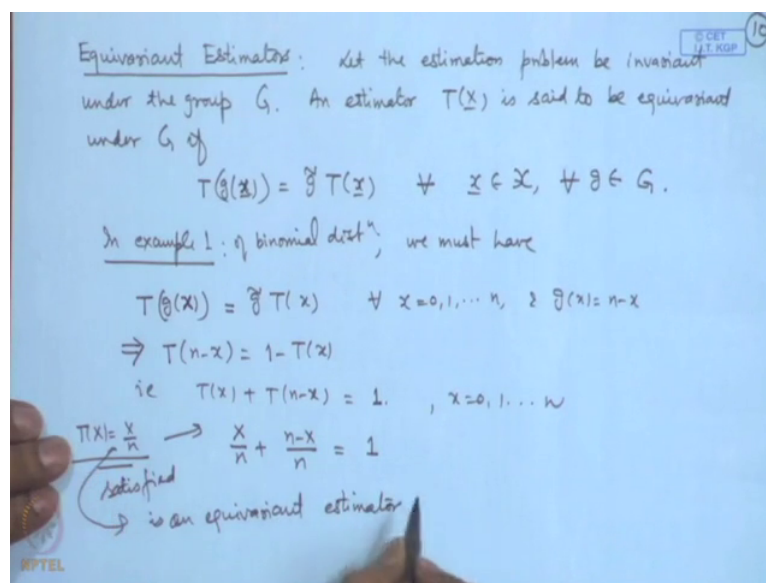 10
© CET
I.I.T. KGP
Equivariant Estimators: Let the estimation problem be invariant
under the group G. An estimator T(x) is said to be equivariant
under G if
T(g(x)) = g̃ T(x) ∀ x ∈ 𝒳, ∀ g ∈ G.
In example 1: of binomial distⁿ, we must have
T(g(x)) = g̃ T(x) ∀ x=0,1,... n, & g(x)= n-x
⇒ T(n-x) = 1- T(x)
ie T(x) + T(n-x) = 1. , x=0, 1 ... n
T(X)= X/n → X/n + (n-X)/n = 1
satisfied
→ is an equivariant estimator
NPTEL